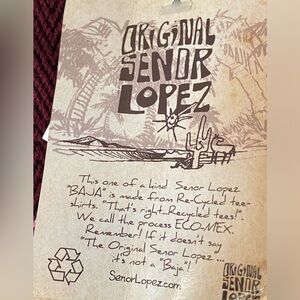 ORIGINAL
SENOR
LOPEZ
This one of a kind Senor Lopez
"BAJA" is made from Re-Cycled tee-
shirts. "That's right...Recycled tees!".
We call the process ECO-MEX.
Remember! If it doesn't say
"The Original Senor Lopez ...
it's not a "Baja"!
SenorLopez.com
ORIGINAL
SENOR
LOPEZ